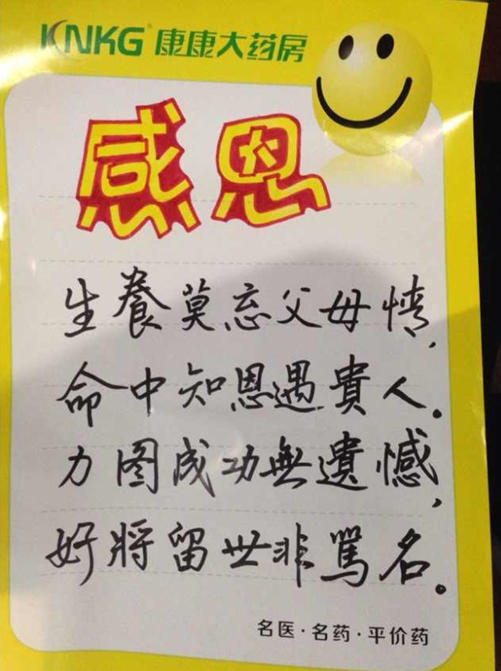 KNKG® 康康大药房
感恩
生養莫忘父母情，
命中知恩遇貴人。
力图成功無遺憾，
好將留世非罵名。
名医·名药·平价药